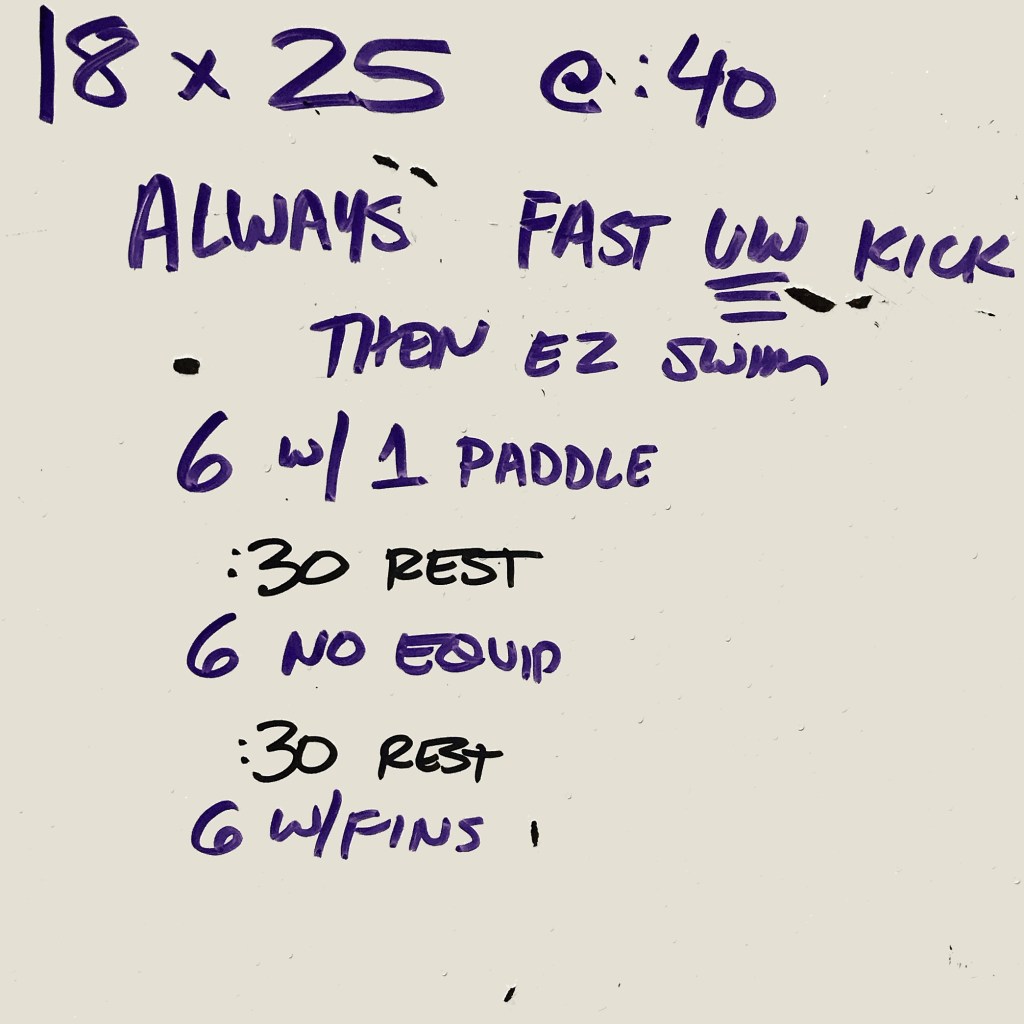 18 x 25 @ :40
ALWAYS FAST UW KICK
THEN EZ SWIM
6 w/ 1 PADDLE
:30 REST
6 NO EQUIP
:30 REST
6 W/FINS